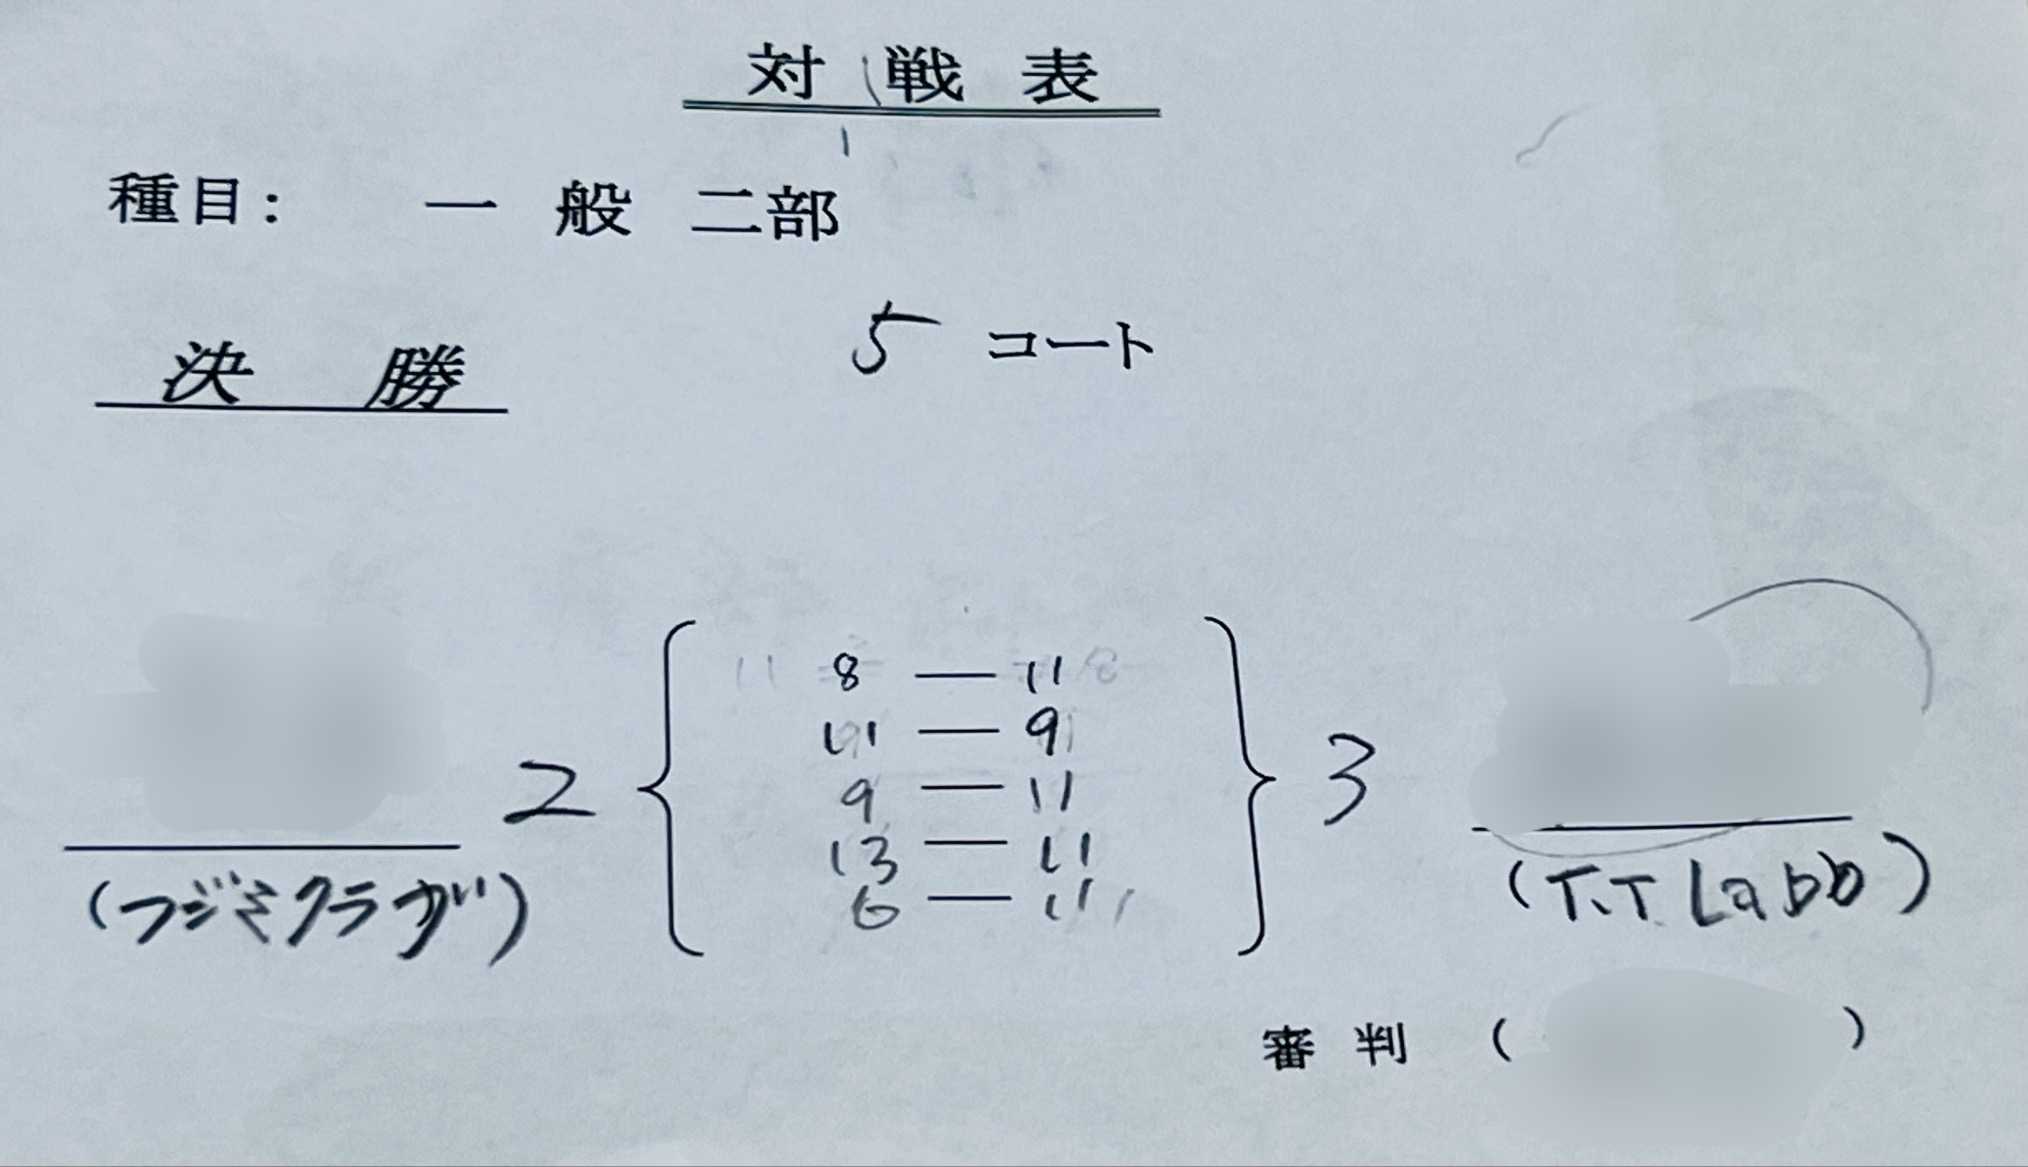 対 戦 表
種目: 一 般 二部
決 勝 5 コート
8 — 11
11 — 9
2 { 9 — 11 } 3
13 — 11
6 — 11
(フジミクラブ) (T.T Labb)
審 判 ( )